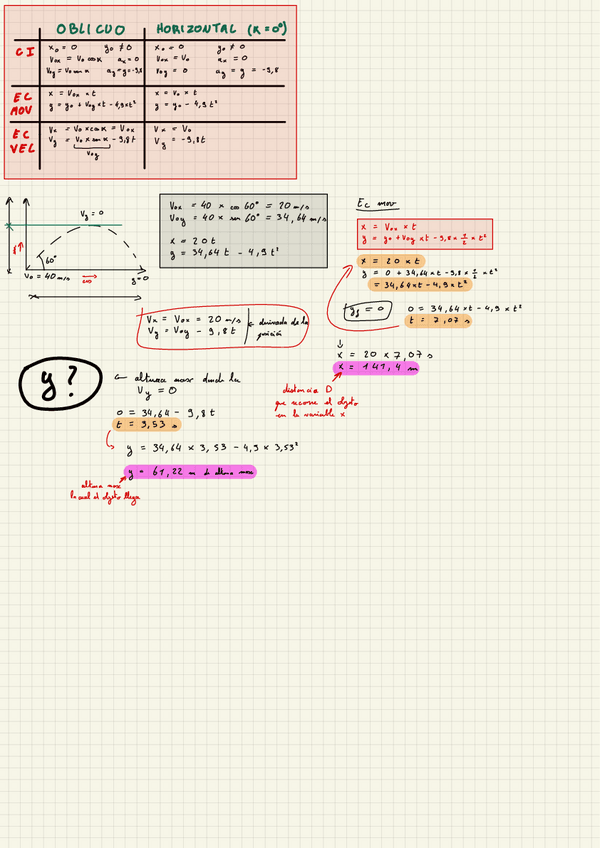 OBLICUO HORIZONTAL (α=0°)
CI
x₀ = 0 y₀ ≠ 0
V₀ₓ = V₀ cos α aₓ = 0
V₀y = V₀ sen α ay = g = -9,8
x₀ = 0 y₀ ≠ 0
V₀ₓ = V₀ aₓ = 0
V₀y = 0 ay = g = -9,8
EC MOV
x = V₀ₓ × t
y = y₀ + V₀y × t - 4,9 t²
x = V₀ × t
y = y₀ - 4,9 t²
EC VEL
Vₓ = V₀ × cos α = V₀ₓ
Vy = V₀ × sen α - 9,8 t
V₀y
Vₓ = V₀
Vy = -9,8 t
Vy = 0
60°
V₀ = 40 m/s
y=0
V₀ₓ = 40 × cos 60° = 20 m/s
V₀y = 40 × sen 60° = 34,64 m/s
x = 20 t
y = 34,64 t - 4,9 t²
Ec mov
x = V₀ₓ × t
y = y₀ + V₀y × t - 9,8 × 1/2 × t²
x = 20 × t
y = 0 + 34,64 × t - 9,8 × 1/2 × t²
= 34,64 × t - 4,9 × t²
yf = 0
0 = 34,64 × t - 4,9 × t²
t = 7,07 s
↓
x = 20 × 7,07 s
x = 141,4 m
distancia D
que recorre el objeto
en la variable x
Vₓ = V₀ₓ = 20 m/s
Vy = V₀y - 9,8 t
← derivada de la
posición
y?
← altura max donde la
Vy = 0
0 = 34,64 - 9,8 t
t = 3,53 s
y = 34,64 × 3,53 - 4,9 × 3,53²
y = 61,22 m de altura max
altura max
la cual el objeto llega